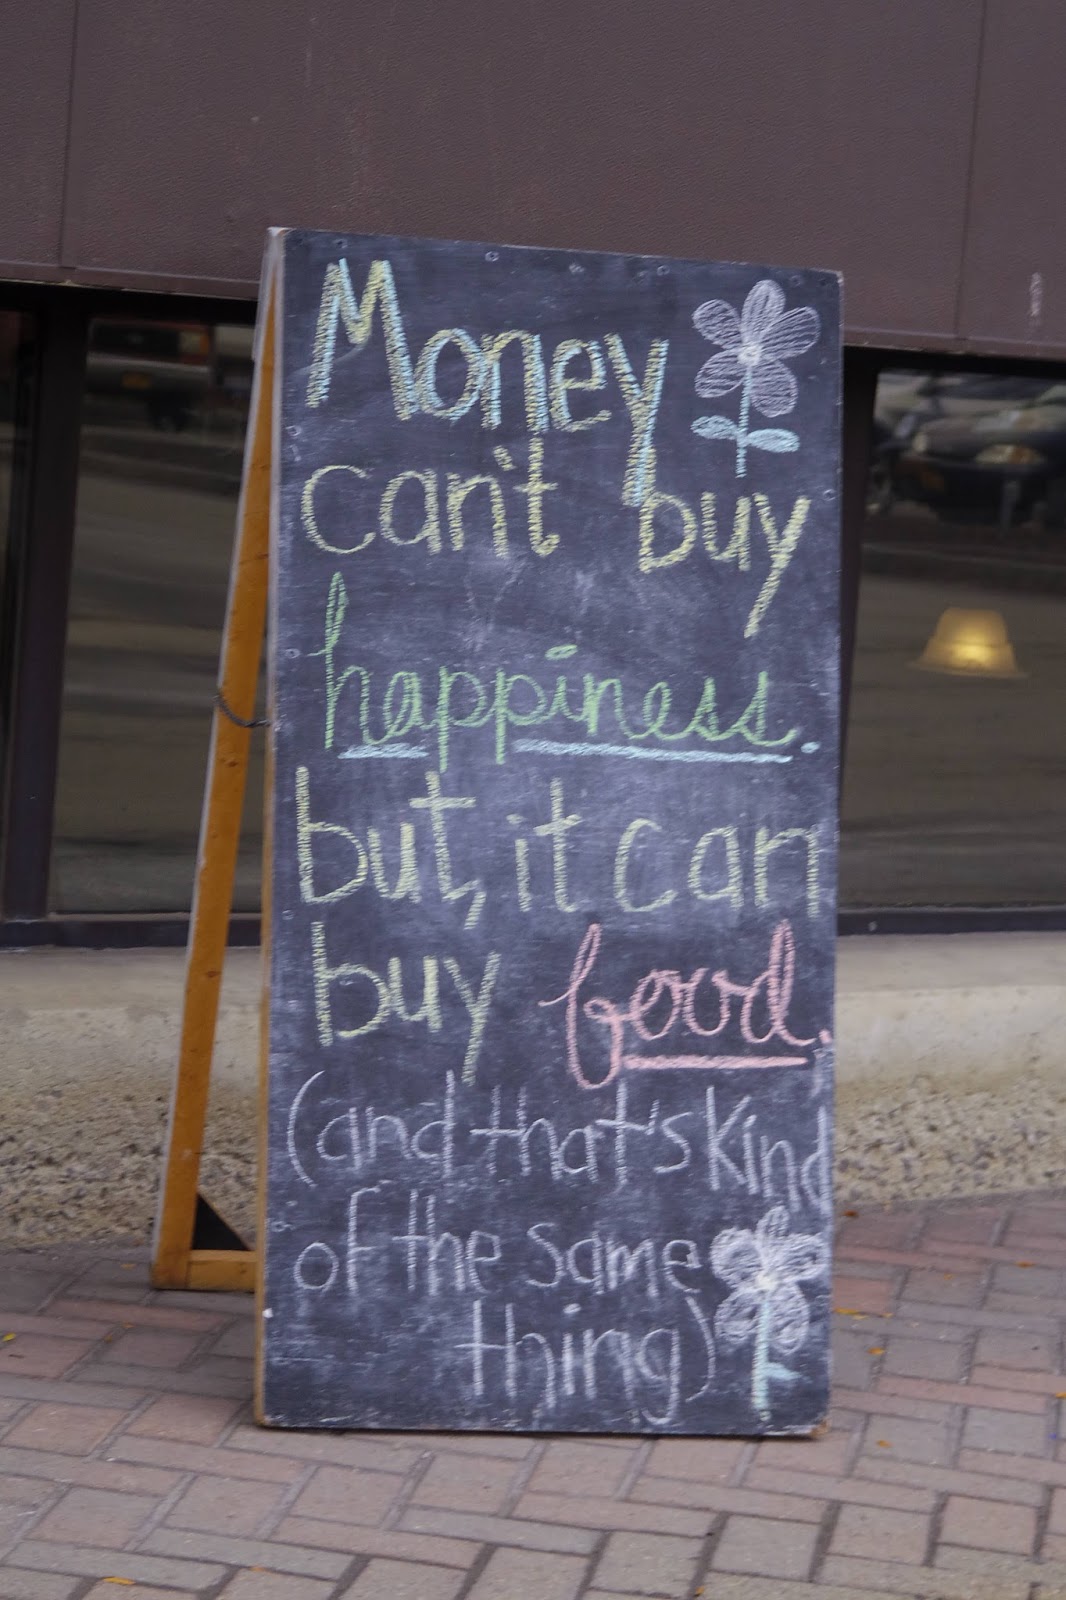 Money
can't buy
happiness.
but, it can
buy food.
(and that's kind
of the same
thing)